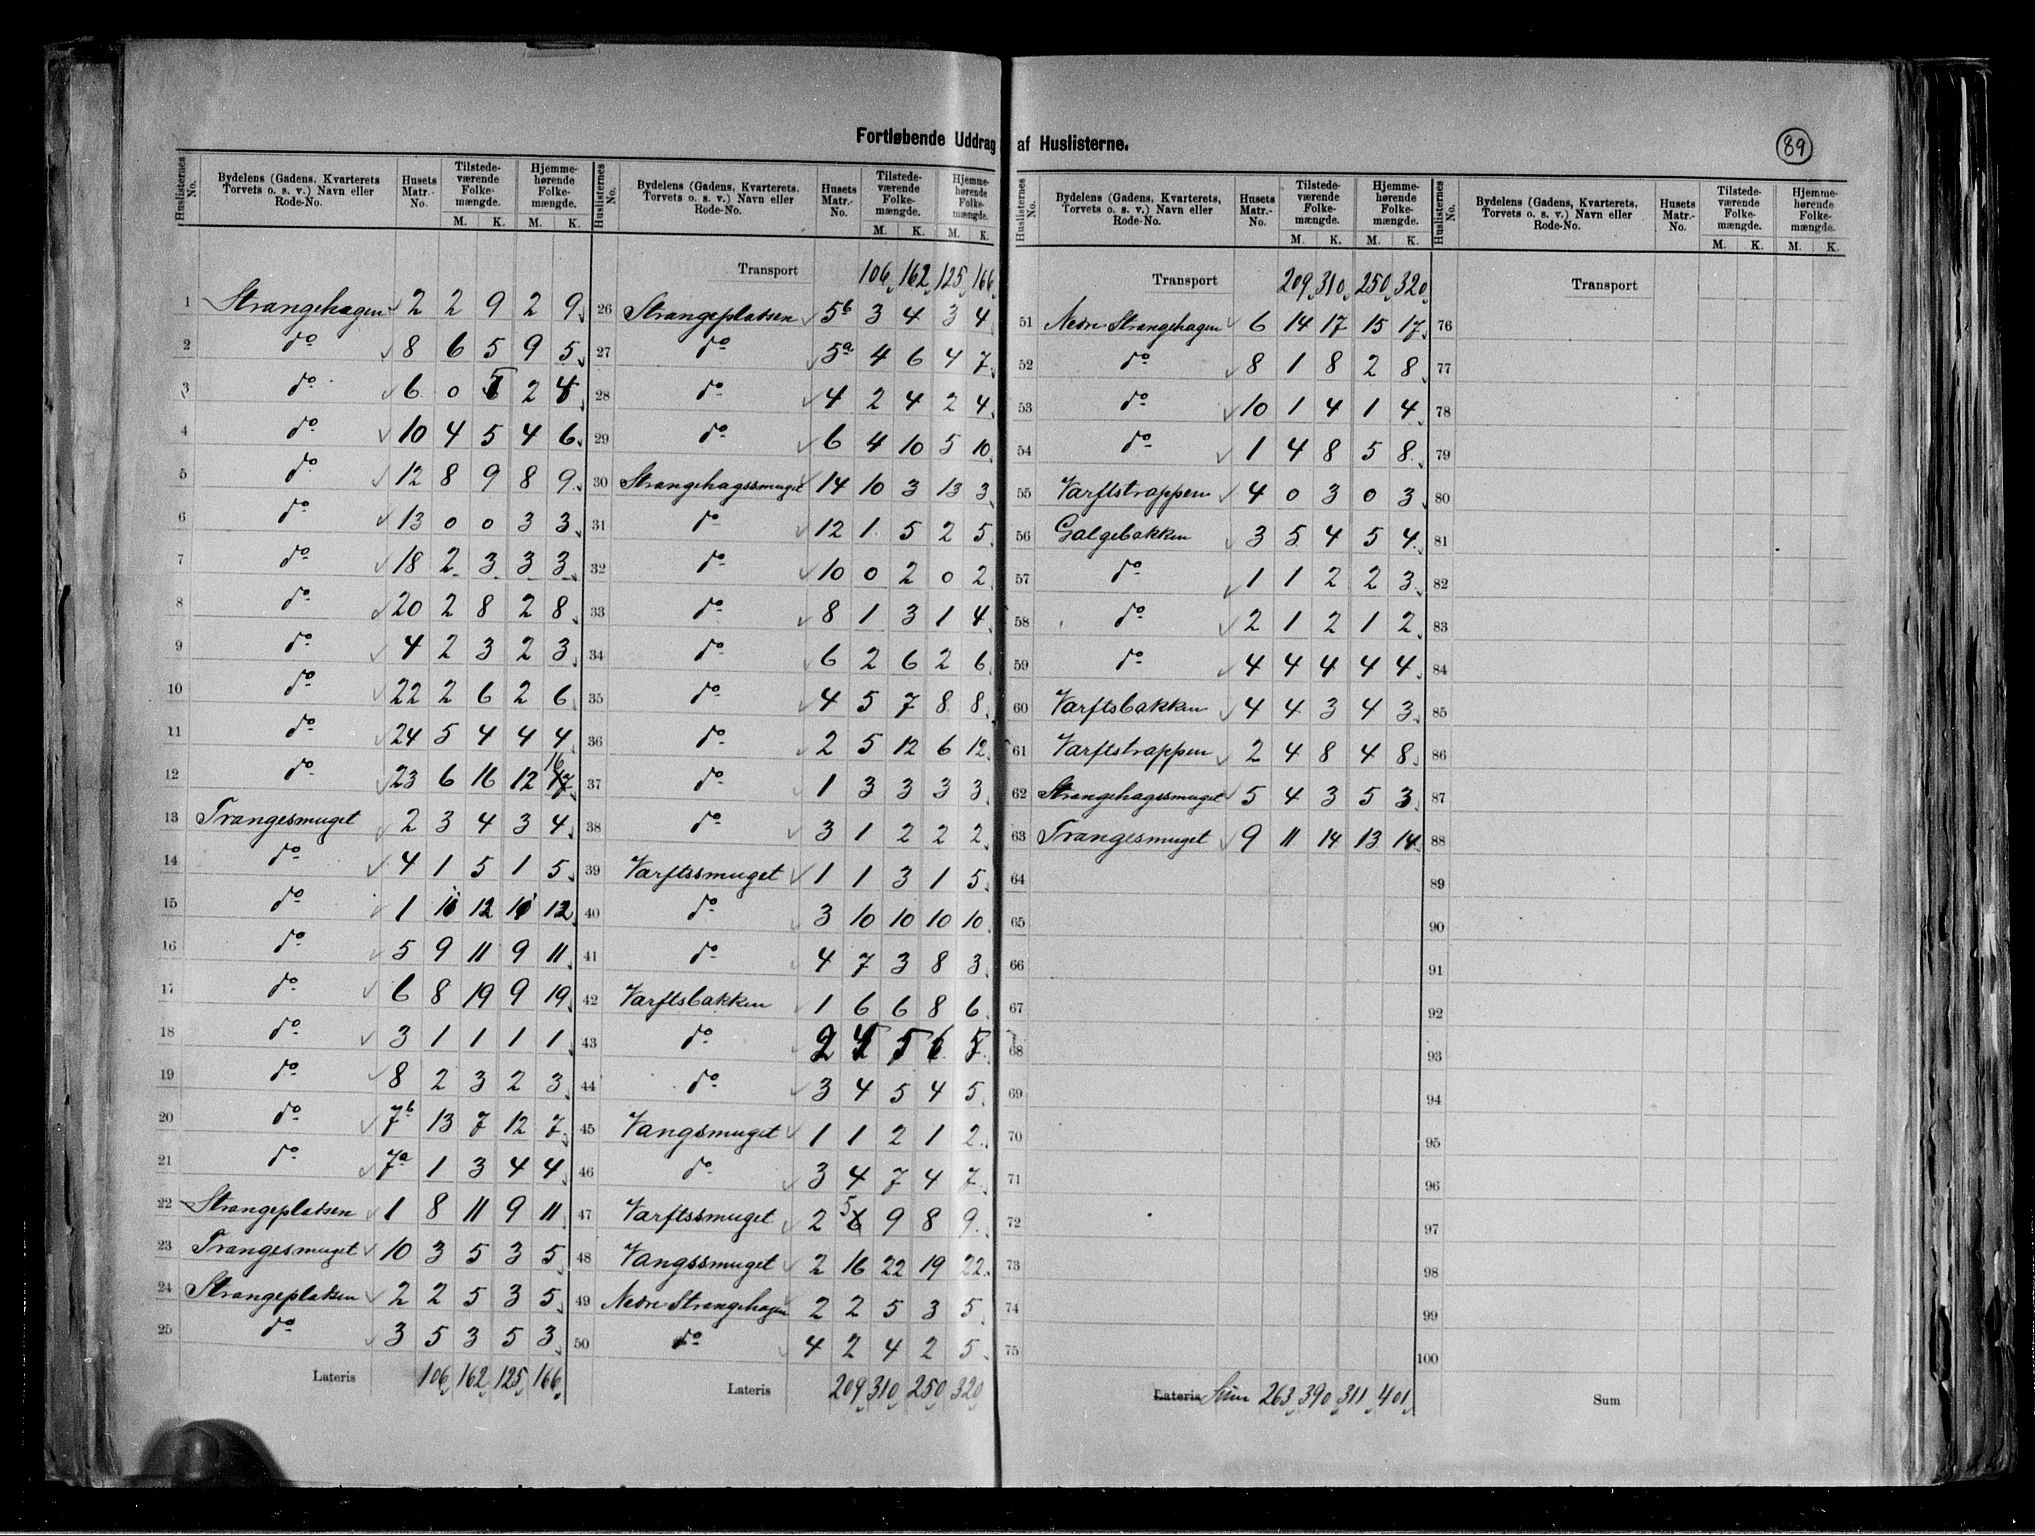 Fortløbende Uddrag af Huslisterne.
89
Huslisternes No. | Bydelens (Gadens, Kvarterets Torvets o. s. v.) Navn eller Rode-No. | Husets Matr.-No. | Tilstedeværende Folkemængde. M. K. | Hjemmehørende Folkemængde. M. K.
1 Strangehagen 2 2 9 2 9
2 do 8 6 5 9 5
3 do 6 0 5 2 4
4 do 10 4 5 4 6
5 do 12 8 9 8 9
6 do 13 0 0 3 3
7 do 18 2 3 3 3
8 do 20 2 8 2 8
9 do 4 2 3 2 3
10 do 22 2 6 2 6
11 do 24 5 4 4 4
12 do 23 6 16 12 16
13 Trangesmuget 2 3 4 3 4
14 do 4 1 5 1 5
15 do 1 11 12 11 12
16 do 5 9 11 9 11
17 do 6 8 19 9 19
18 do 3 1 1 1 1
19 do 8 2 3 2 3
20 do 7b 13 7 12 7
21 do 7a 1 3 4 4
22 Strangepladsen 1 8 11 9 11
23 Trangesmuget 10 3 5 3 5
24 Strangepladsen 2 2 5 3 5
25 do 3 5 3 5 3
Lateris 106 162 125 166
Huslisternes No. | Bydelens (Gadens, Kvarterets, Torvets o. s. v.) Navn eller Rode-No. | Husets Matr.-No. | Tilstedeværende Folkemængde. M. K. | Hjemmehørende Folkemængde. M. K.
Transport 106 162 125 166
26 Strangepladsen 5b 3 4 3 4
27 do 5a 4 6 4 7
28 do 4 2 4 2 4
29 do 6 4 10 5 10
30 Strangehagssmuget 14 10 3 13 3
31 do 12 1 5 2 5
32 do 10 0 2 0 2
33 do 8 1 3 1 4
34 do 6 2 6 2 6
35 do 4 5 7 8 8
36 do 2 5 12 6 12
37 do 1 3 3 3 3
38 do 3 1 2 2 2
39 Varftssmuget 1 1 3 1 5
40 do 3 10 10 10 10
41 do 4 7 3 8 3
42 Varftsbakken 1 6 6 8 6
43 do 2 4 5 6 5
44 do 3 4 5 4 5
45 Vangsmuget 1 1 2 1 2
46 do 3 4 7 4 7
47 Varftssmuget 2 5 9 8 9
48 Vangssmuget 2 16 22 19 22
49 Nedre Strangehagen 2 2 5 3 5
50 do 4 2 4 2 5
Lateris 209 310 250 320
Huslisternes No. | Bydelens (Gadens, Kvarterets, Torvets o. s. v.) Navn eller Rode-No. | Husets Matr.-No. | Tilstedeværende Folkemængde. M. K. | Hjemmehørende Folkemængde. M. K.
Transport 209 310 250 320
51 Nedre Strangehagen 6 14 17 15 17
52 do 8 1 8 2 8
53 do 10 1 4 1 4
54 do 1 4 8 5 8
55 Varftstrappen 4 0 3 0 3
56 Galgebakken 3 5 4 5 4
57 do 1 1 2 2 3
58 do 2 1 2 1 2
59 do 4 4 4 4 4
60 Varftsbakken 4 4 3 4 3
61 Varftstrappen 2 4 8 4 8
62 Strangehagssmuget 5 4 3 5 3
63 Trangesmuget 9 11 14 13 14
64
65
66
67
68
69
70
71
72
73
74
75
Lateris Sum 263 390 311 401
Huslisternes No. | Bydelens (Gadens, Kvarterets, Torvets o. s. v.) Navn eller Rode-No. | Husets Matr.-No. | Tilstedeværende Folkemængde. M. K. | Hjemmehørende Folkemængde. M. K.
Transport
76
77
78
79
80
81
82
83
84
85
86
87
88
89
90
91
92
93
94
95
96
97
98
99
100
Sum